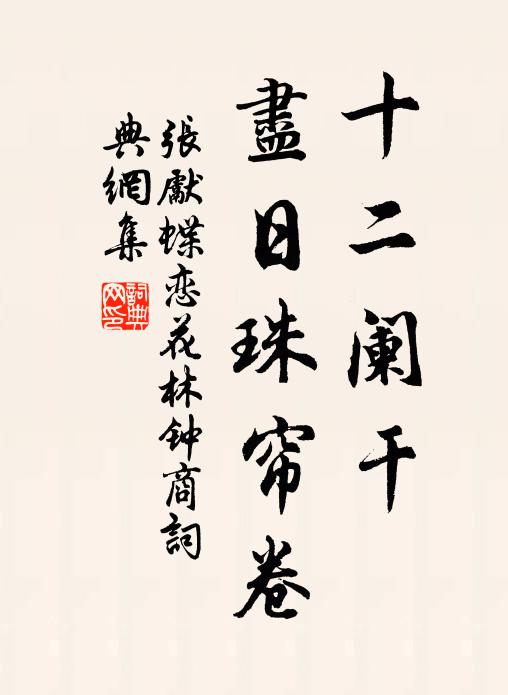 十二阑干
盡日珠帘卷
張獻蝶恋花林钟商詞
典網集
詞典网印